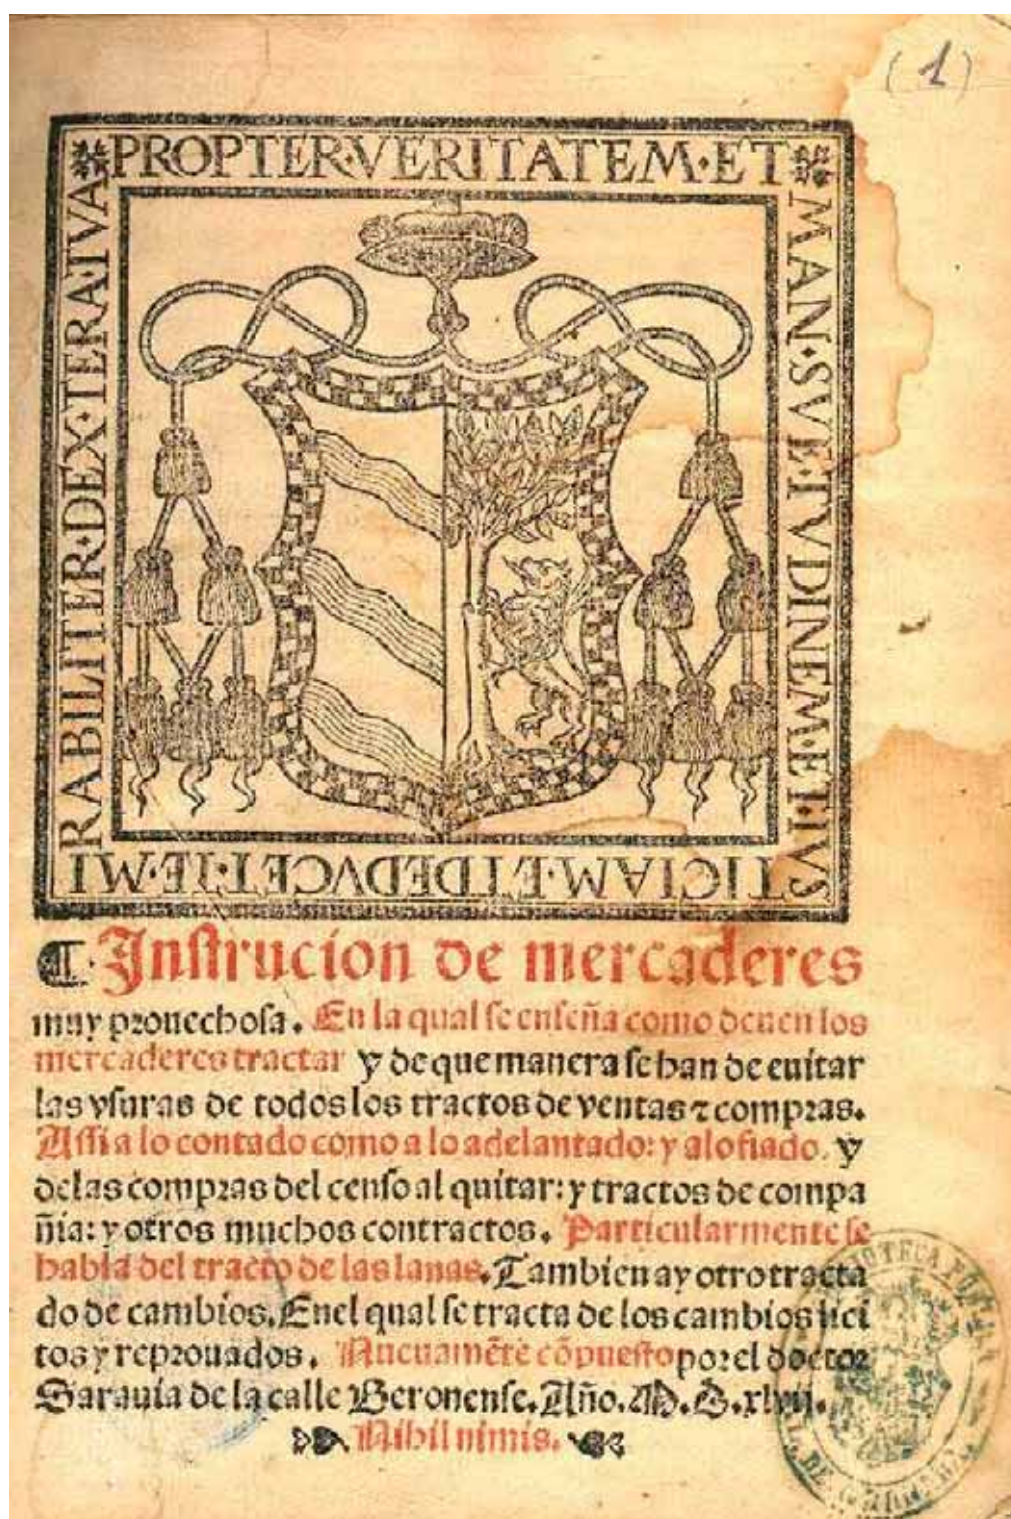 (1)
PROPTER·VERITATEM·ET
MAN·SVE·TVDINEM·ET·IVS
TICIAM·ET DEDVCET·TE·MI
RABILITER·DEX·TERA·TVA
¶·Instrucion de mercaderes
muy prouechosa. En la qual se enseña como deuen los
mercaderes tractar y de que manera se han de euitar
las vsuras de todos los tractos de ventas ⁊ compras.
Assi a lo contado como a lo adelantado: y alofiado. y
delas compras del censo al quitar: y tractos de compa
ñia: y otros muchos contractos. Particularmente se
habla del tracto de las lanas. Tambien ay otro tracta
do de cambios. Enel qual se tracta de los cambios lici
tos y reprouados. Nueuamẽte cõpuesto por el doctor
Sarauia de la calle Beronense. Año. M.D.xlvij.
Nihil nimis.
BIBLIOTECA PÚBLICA